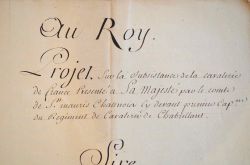 Au Roy.
Projet. Sur la subsistance de la cavalerie
de france Presenté a Sa Majesté par le comte
de St. mauris Chatenois cy devant premier Capne
du Regiment de Cavalerie de Chabrillant.
Sire